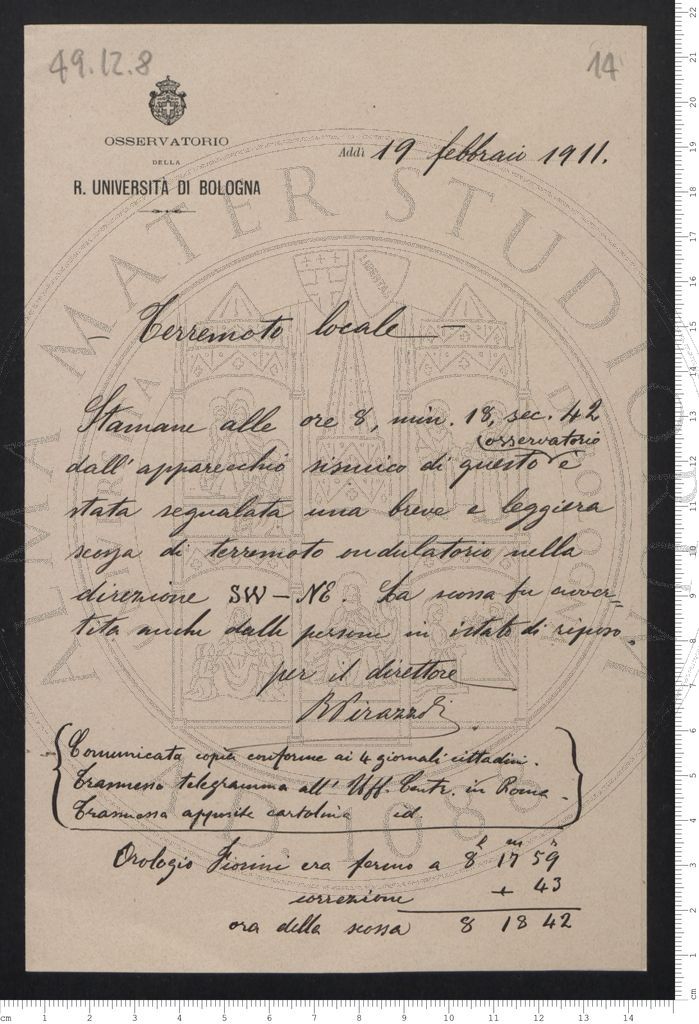 49.12.8
14
OSSERVATORIO
DELLA
R. UNIVERSITÀ DI BOLOGNA
Addì 19 febbraio 1911.
– Terremoto locale –
Stamane alle ore 8, min. 18, sec. 42
(osservatorio
dall'apparecchio sismico di questo è
stata segnalata una breve e leggiera
scossa di terremoto ondulatorio nella
direzione SW – NE. La scossa fu avver=
tita anche dalle persone in istato di riposo.
per il direttore
R Pirazzoli
Comunicata copia conforme ai 4 giornali cittadini.
Trasmesso telegramma all' Uff. Centr. in Roma.
Trasmessa apposite cartolina id.
Orologio Fiorini era fermo a 8h 17m 59s
correzione + 43
ora della scossa 8 18 42
ALMA MATER STUDIO
A.D. 1088